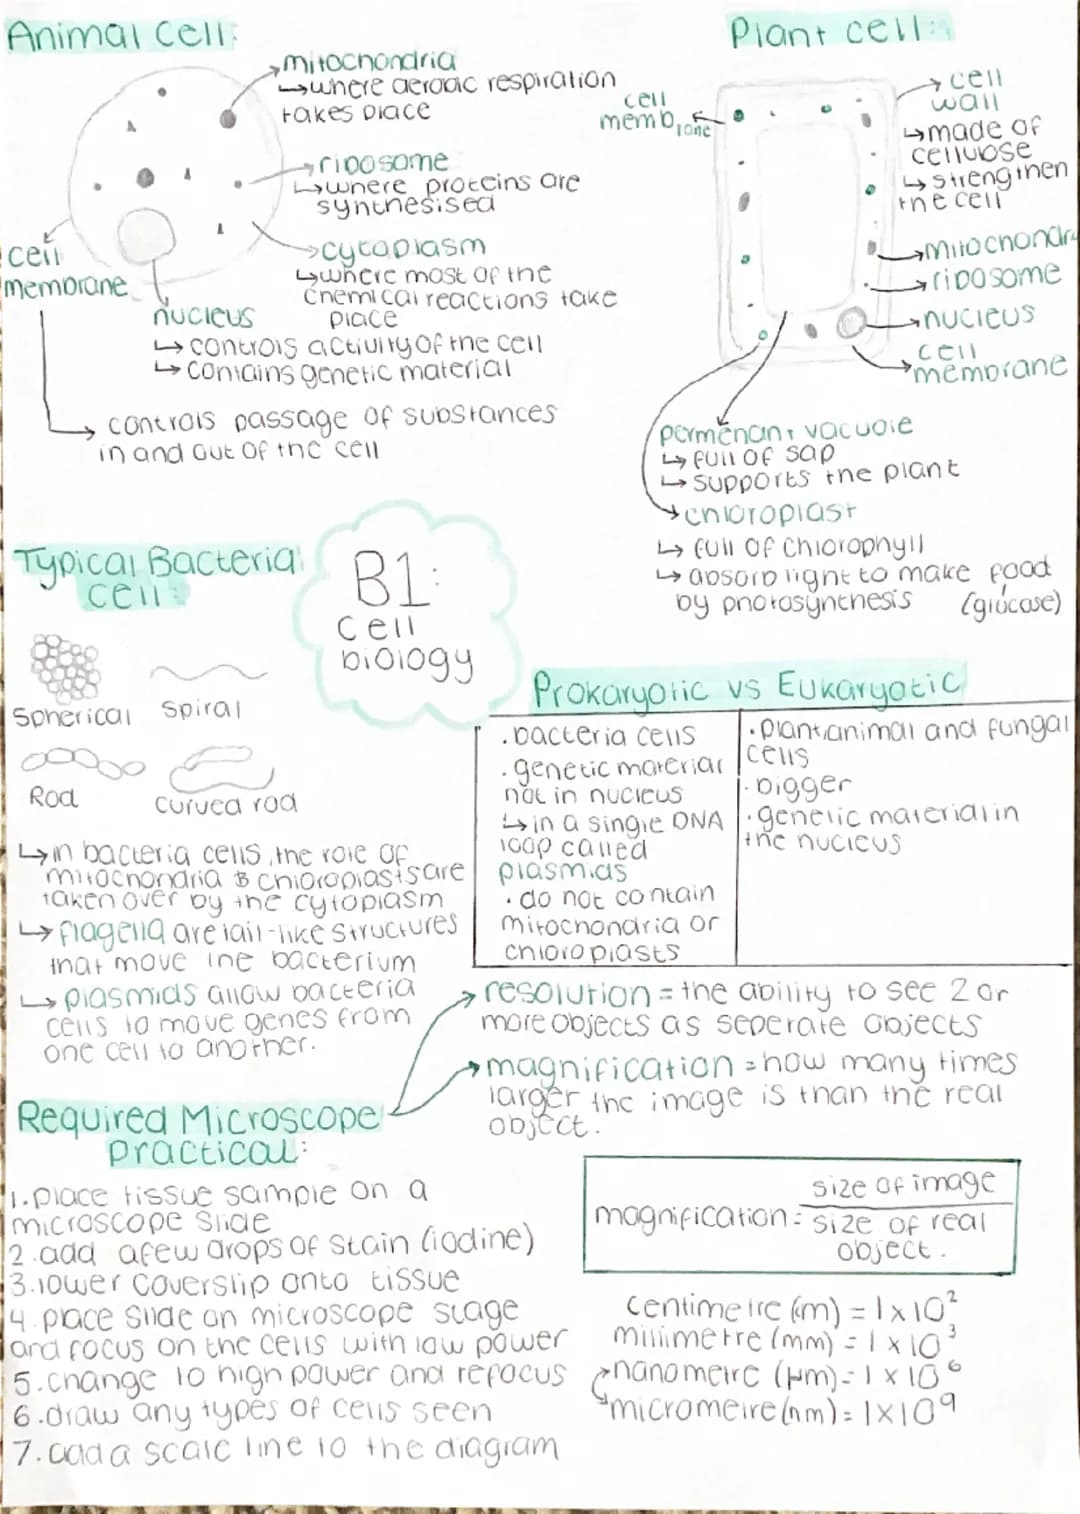 Animal cell:
mitochondria
↳where aerobic respiration
takes place
ribosome
↳where proteins are
synthesised
cytoplasm
↳where most of the
chemical reactions take
place
cell
membrane
nucleus
↳ controls activity of the cell
↳ contains genetic material
controls passage of substances
in and out of the cell
Plant cell:
cell
membrane
cell
wall
↳made of
cellulose
↳ strengthen
the cell
mitochondr
ribosome
nucleus
cell
membrane
permenant vacuole
↳ full of sap
↳ supports the plant
chloroplast
↳ full of chlorophyll
↳ absorb light to make food
by photosynthesis (glucose)
Typical Bacteria
cell:
Spherical
Spiral
Rod
curved rod
↳in bacteria cells, the role of
mitochondria & chloroplasts are
taken over by the cytoplasm
↳ flagella are tail-like structures
that move the bacterium
↳ plasmids allow bacteria
cells to move genes from
one cell to another.
B1:
cell
biology
Prokaryotic vs Eukaryotic
.bacteria cells
.genetic material
not in nucleus
↳in a single DNA
loop called
plasmids
.do not contain
mitochondria or
chloroplasts
.plant, animal and fungal
cells
.bigger
.genetic material in
the nucleus
resolution = the ability to see 2 or
more objects as seperate objects
magnification = how many times
larger the image is than the real
object.
Required Microscope
practical:
1.place tissue sample on a
microscope slide
2.add a few drops of stain (iodine)
3.lower coverslip onto tissue
4.place slide on microscope stage
and focus on the cells with low power
5.change to high power and refocus
6.draw any types of cells seen
7.add a scale line to the diagram
magnification = size of image
size of real
object.
centimetre (cm) = 1 x 10²
millimetre (mm) = 1 x 10³
nanometre (μm) = 1 x 10⁶
micrometre (nm) = 1x10⁹